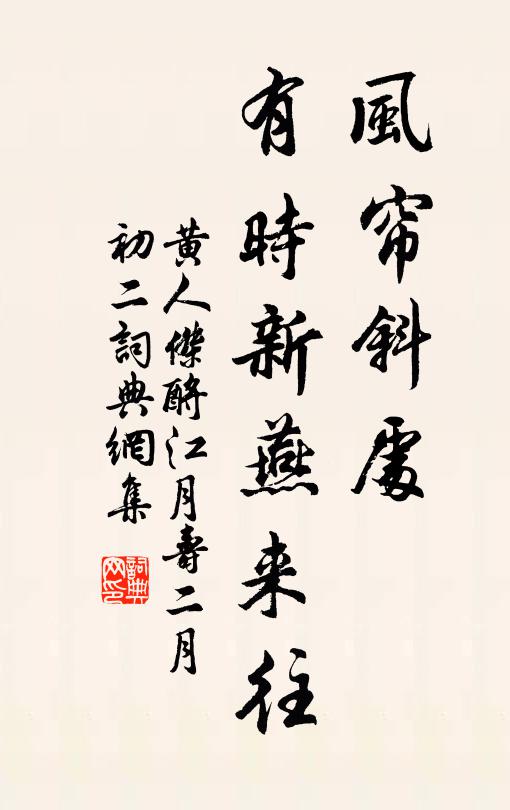 風帘斜處
有時新燕来往
黄人傑酹江月壽二月
初二詞典網集
詞典
网印